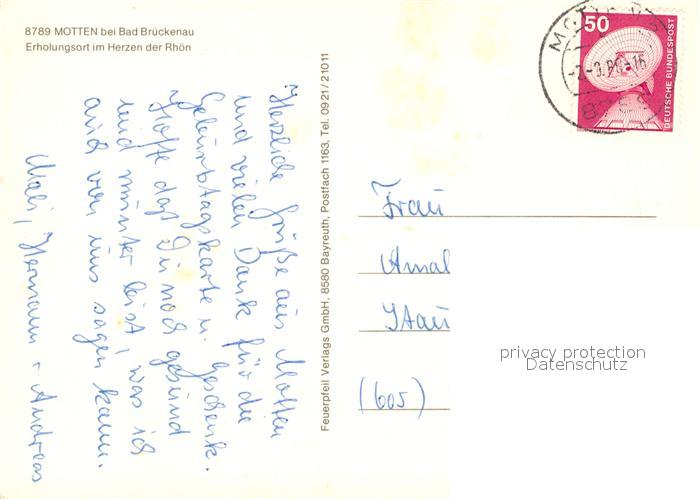 8789 MOTTEN bei Bad Brückenau
Erholungsort im Herzen der Rhön
Herzliche Grüße aus Motten
und vielen Dank für die
Geburtstagskarte u. Geschenk.
Hoffe daß Du noch gesund
und munter bist, was ich
auch von uns sagen kann.
Hermann + Andreas
Feuerpfeil Verlags GmbH, 8580 Bayreuth, Postfach 1163, Tel. 0921/21011
50
DEUTSCHE BUNDESPOST
Frau
Amal
(605)
privacy protection
Datenschutz